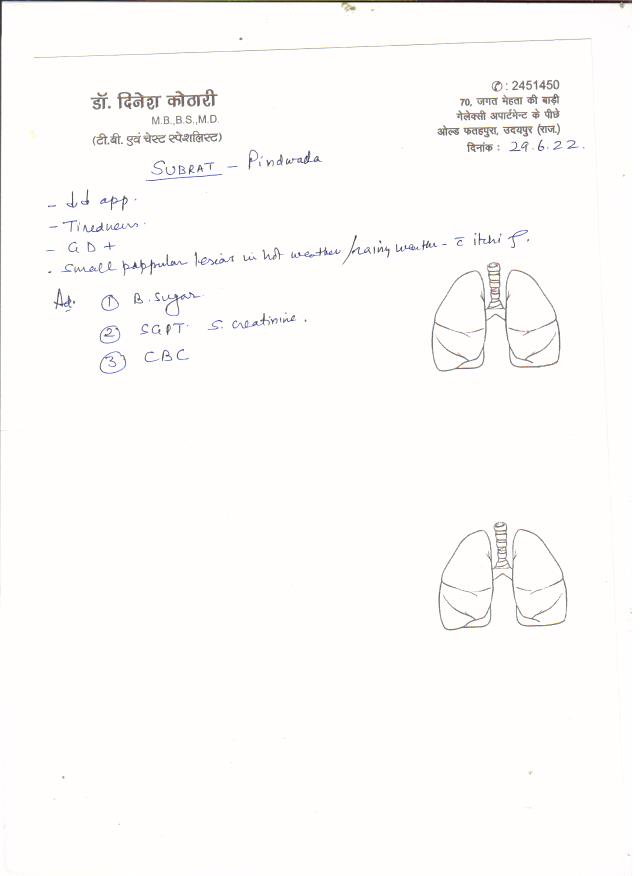 डॉ. दिनेश कोठारी
M.B.,B.S.,M.D.
(टी.बी. एवं चेस्ट स्पेशलिस्ट)
✆ : 2451450
70, जगत मेहता की बाड़ी
गेलेक्सी अपार्टमेन्ट के पीछे
ओल्ड फतहपुरा, उदयपुर (राज.)
दिनांक : 29.6.22.
SUBRAT - Pindwada
- ↓↓ app.
- Tiredness.
- GD +
. Small pappular lesion in hot weather/rainy weather - c̄ itchi
Ad. ① B. Sugar.
② SGPT. S. creatinine.
③ CBC